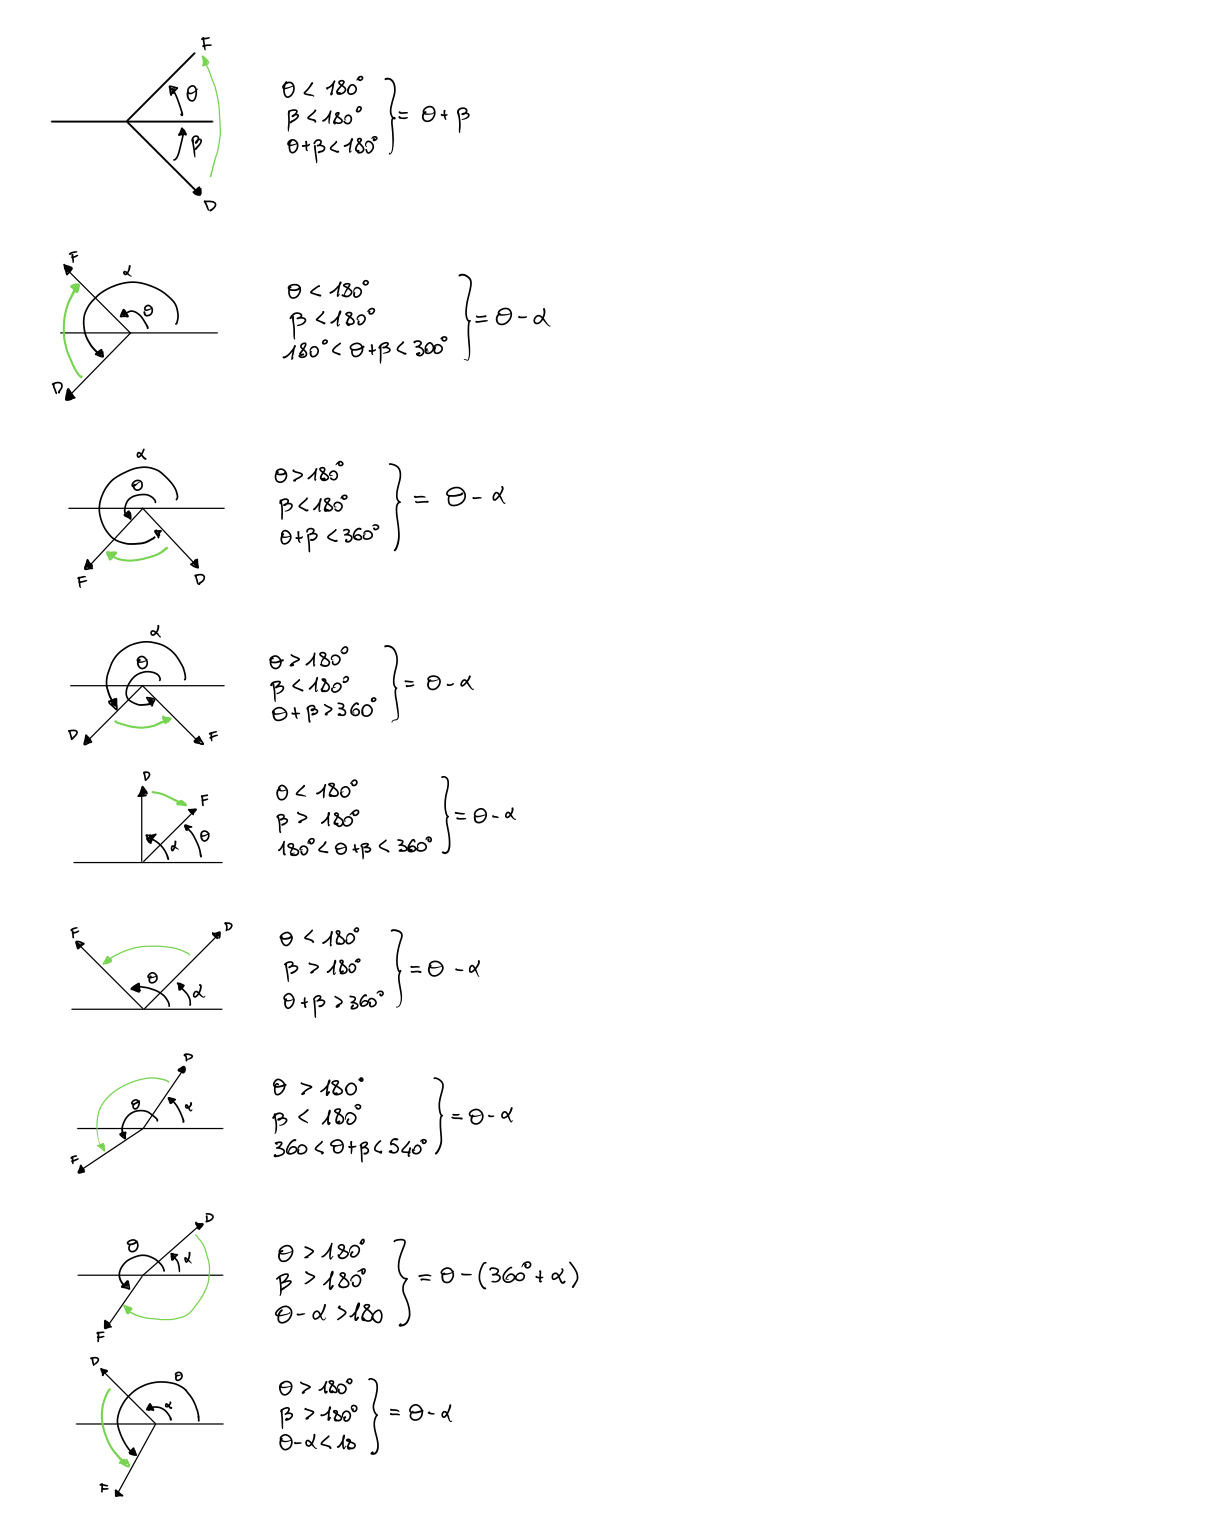 F
θ
β
D
θ < 180°
β < 180°
θ+β < 180°
= θ + β
F
α
θ
D
θ < 180°
β < 180°
180° < θ+β < 300°
= θ - α
α
θ
F
D
θ > 180°
β < 180°
θ+β < 360°
= θ - α
α
θ
D
F
θ > 180°
β < 180°
θ + β > 360°
= θ - α
D
F
θ
α
θ < 180°
β > 180°
180° < θ+β < 360°
= θ - α
F
D
θ
α
θ < 180°
β > 180°
θ+β > 360°
= θ - α
D
θ
α
F
θ > 180°
β < 180°
360 < θ+β < 540°
= θ - α
D
θ
α
F
θ > 180°
β > 180°
θ - α > 180
= θ - (360° + α)
D
θ
α
F
θ > 180°
β > 180°
θ - α < 18
= θ - α